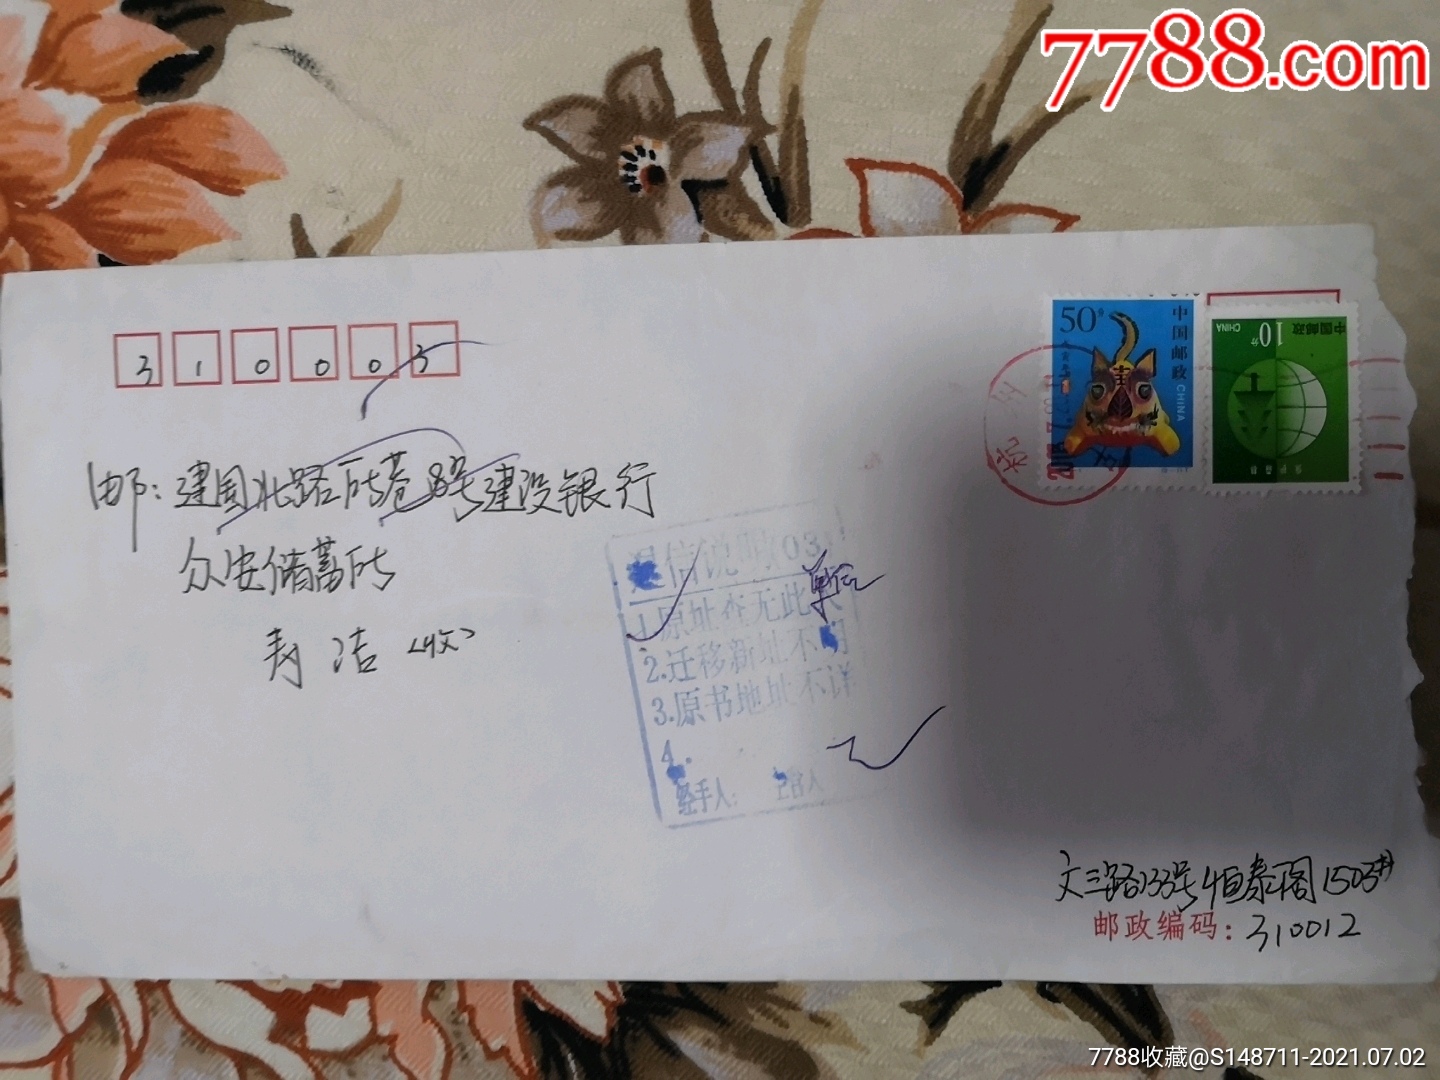 7788.com
310003
50分
中国邮政
CHINA
10分
中国邮政
CHINA
邮:建国北路 8号建设银行
众安储蓄所
寿洁(收)
退信说 03
1.原址查无此人
2.迁移新址不明
3.原书地址不详
4.
经手人:
文三路133号恒泰阁1503#
邮政编码:310012
7788收藏@S148711-2021.07.02